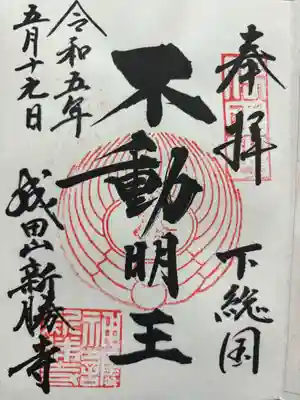 奉拝
下総国
不動明王
令和五年
五月十九日
成田山新勝寺